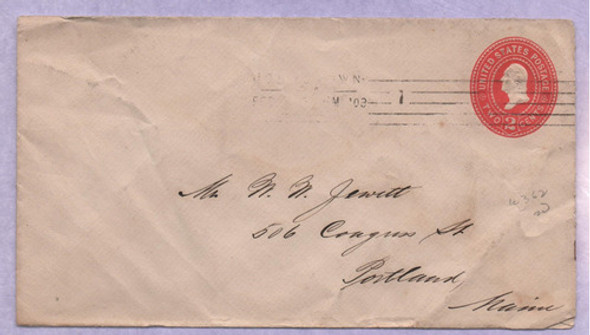 '03
1
UNITED STATES POSTAGE
TWO 2 CENTS
Mr W. W. Jewitt
506 Congress St.
Portland
Maine